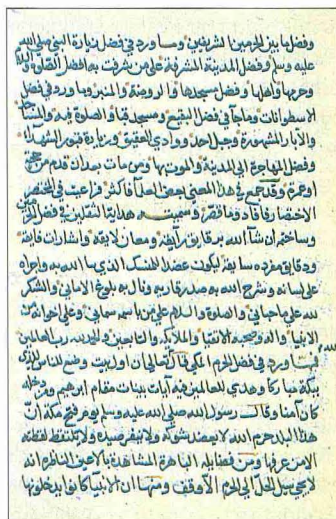 وفضل ما بين الحرمين الشريفين وما ورد في فضل زيارة النبي صلى الله
عليه وسلم وفضل المدينة المشرفة على من شرفت به افضل الصلوة
وحرمها واهلها وفضل مسجدها والروضة والمنبر وما ورد في فضل
الاسطوانات وما جآ في فضل البقيع ومسجد قبا والصلوة فيه
والآبار المشهورة وجبل احد ووادي العقيق وزيارة قبور الشهدآ
وفضل المهاجرة الى المدينة والموت بها ومن مات بعد ان قدم من حج
او عمرة وقد جمع في هذا المعنى بعض العلمآ فاكثر وراغب في
الاختصار فافاد وما قصر وسميته هداية الثقلين في فضل الحرمين
وساختم ان شآ الله برقايق رايقة ومعان لايقة واشارات فايقة
ودقايق مفردة سابقة ليكون عضد المنسك الذي يسر الله به واجراه
على لسانه وشرح الله به صدر قاريه ونال به بلوغ الاماني والشكر
لله على ما حباني والصلوة والسلام على من باسمه سماني وعلى اخوانه من
الانبيا واله وصحبه الاتقيا والملائكة والتابعين والحمد لله رب العالمين
ما ورد في فضل الحرم المكي قال تعالى ان اول بيت وضع للناس للذي
ببكة مباركا وهدى للعالمين فيه آيات بينات مقام ابرهيم ومن دخله
كان آمنا وقال رسول الله صلى الله عليه وسلم يوم فتح مكة ان
هذا البلد حرم الله لا يعضد شوكه ولا ينفر صيده ولا يلتقط لقطته
الا من عرفها ومن فضايله الباهرة المشاهدة بالاعين الناظرة انه
لا يجي سيل الحل الى الحرم الا وقف ومنها ان الانبيا كانوا يدخلونها